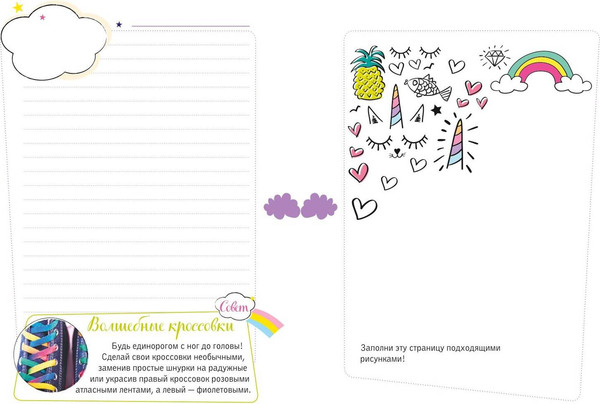 Совет
Волшебные кроссовки
Будь единорогом с ног до головы!
Сделай свои кроссовки необычными,
заменив простые шнурки на радужные
или украсив правый кроссовок розовыми
атласными лентами, а левый — фиолетовыми.
Заполни эту страницу подходящими
рисунками!